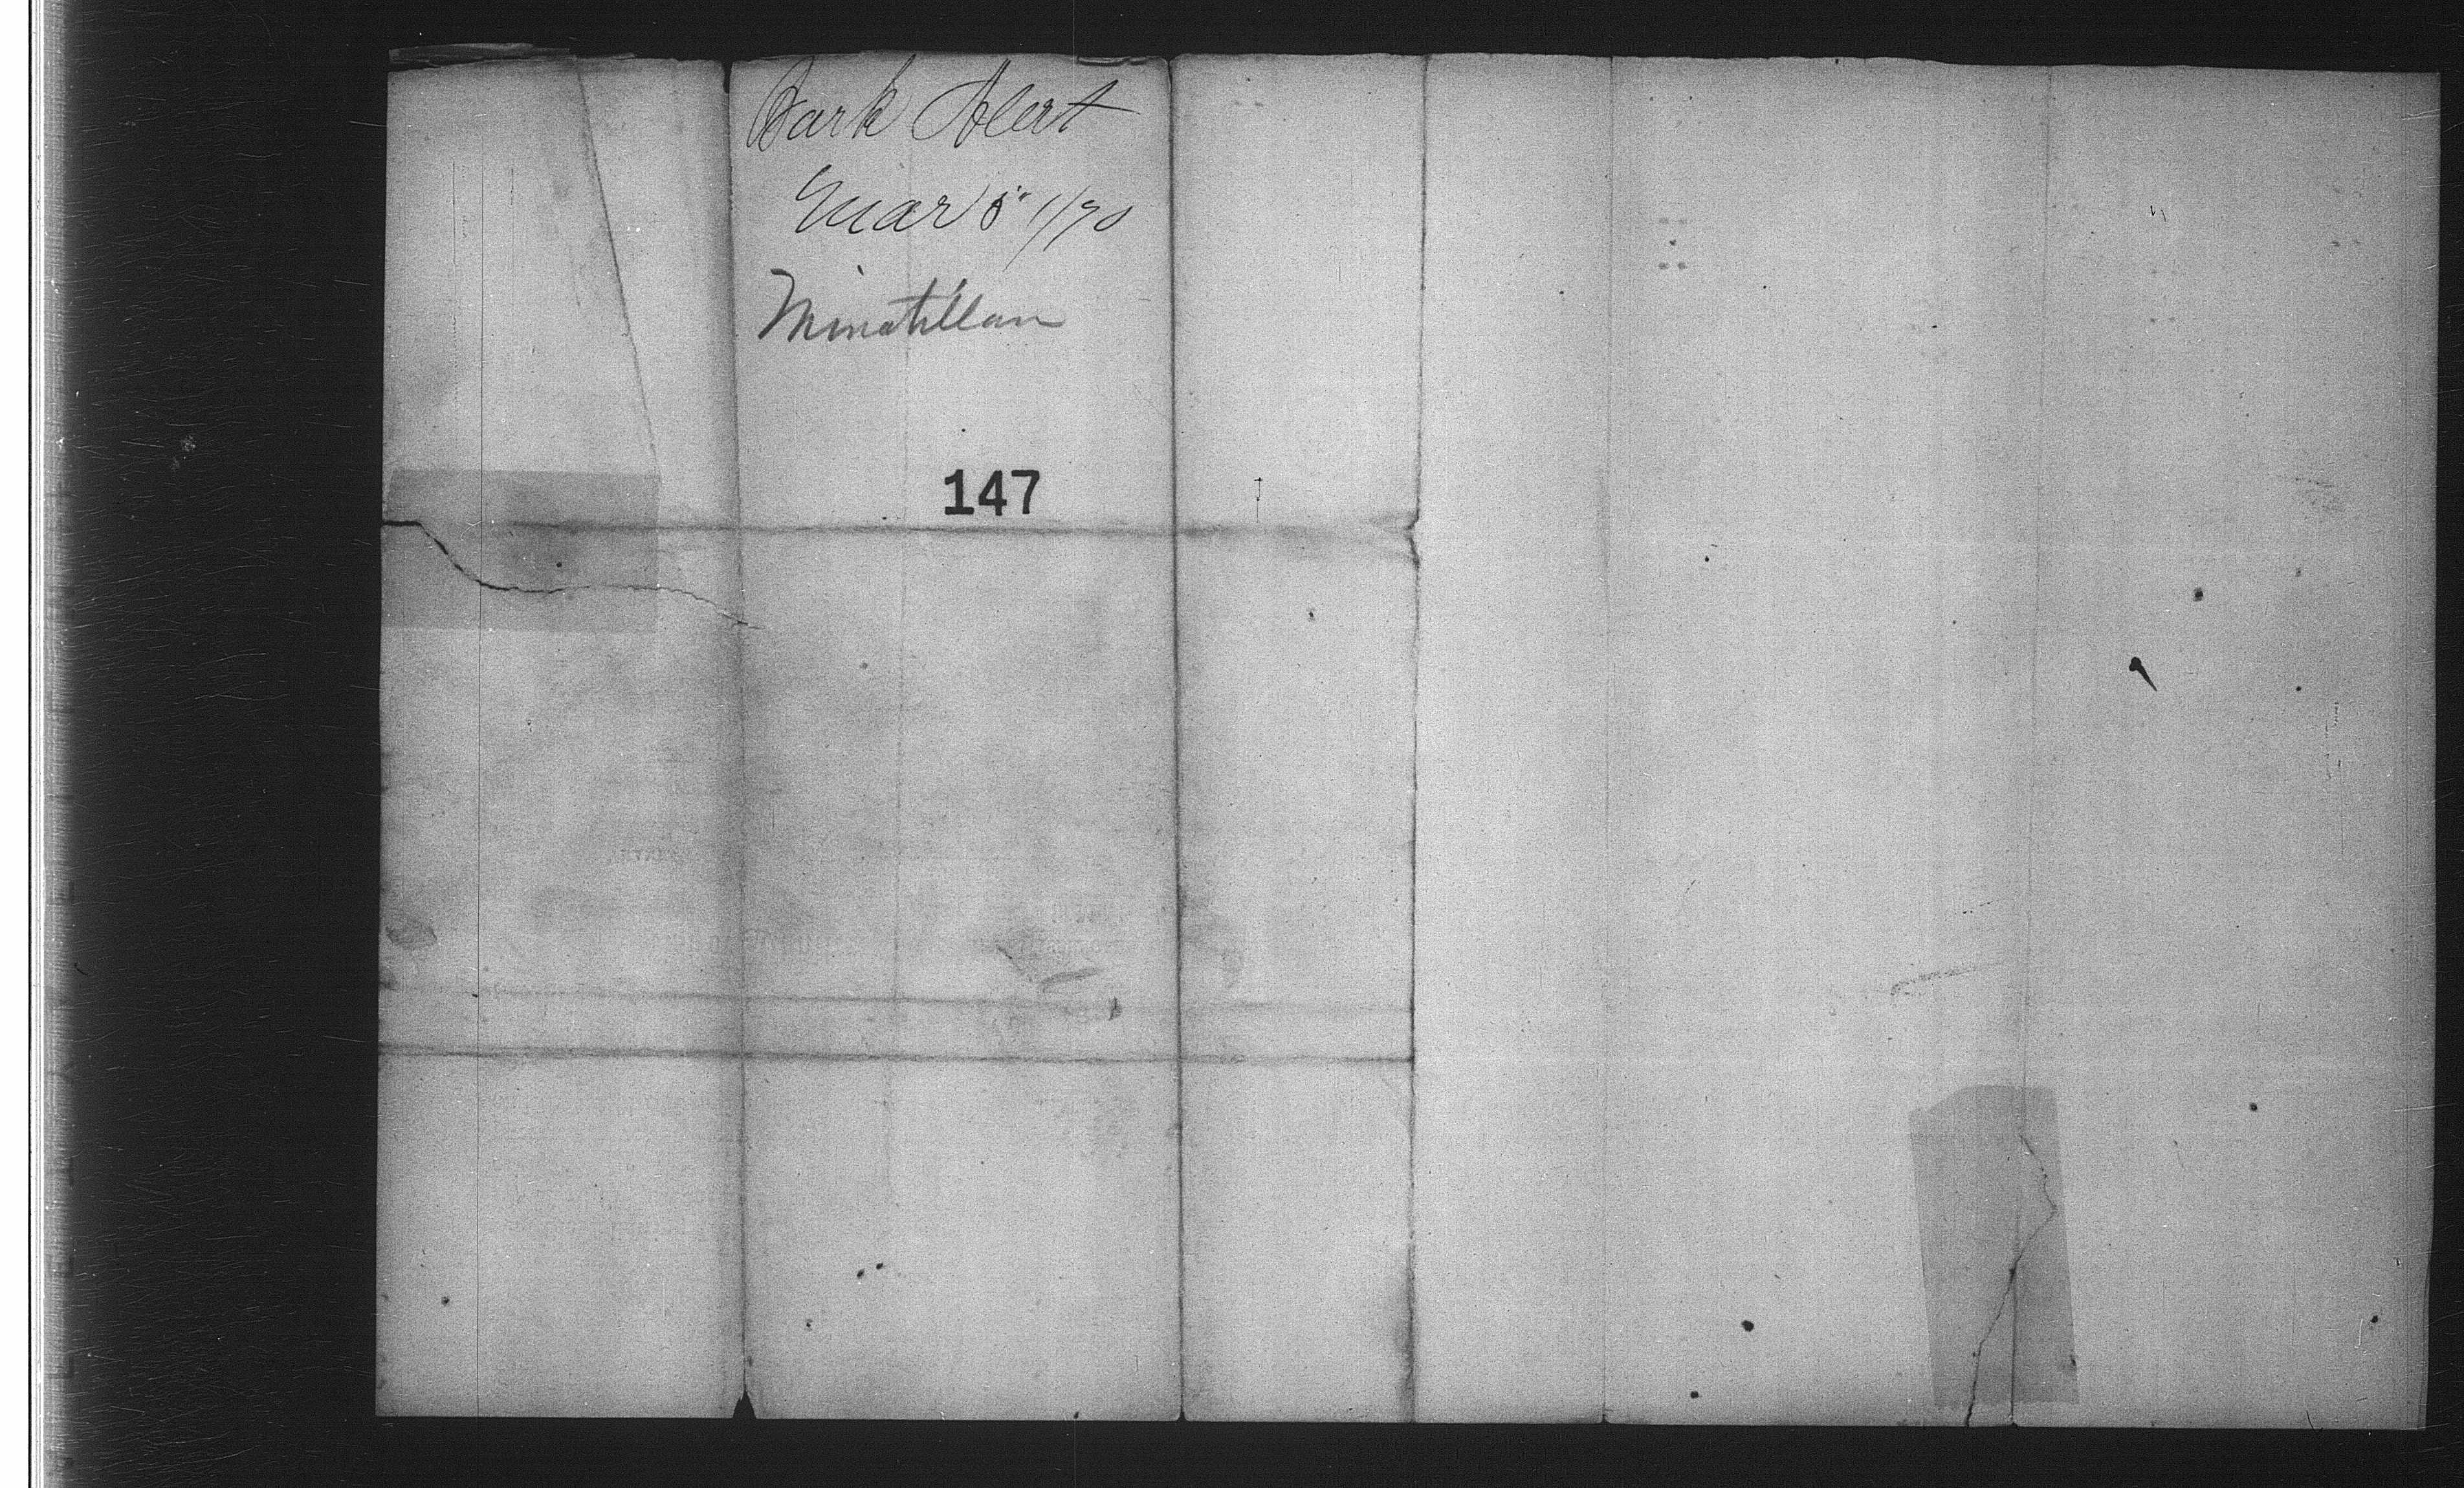 Bark Alert
Mar 5" 1/70
Minatitlan
147